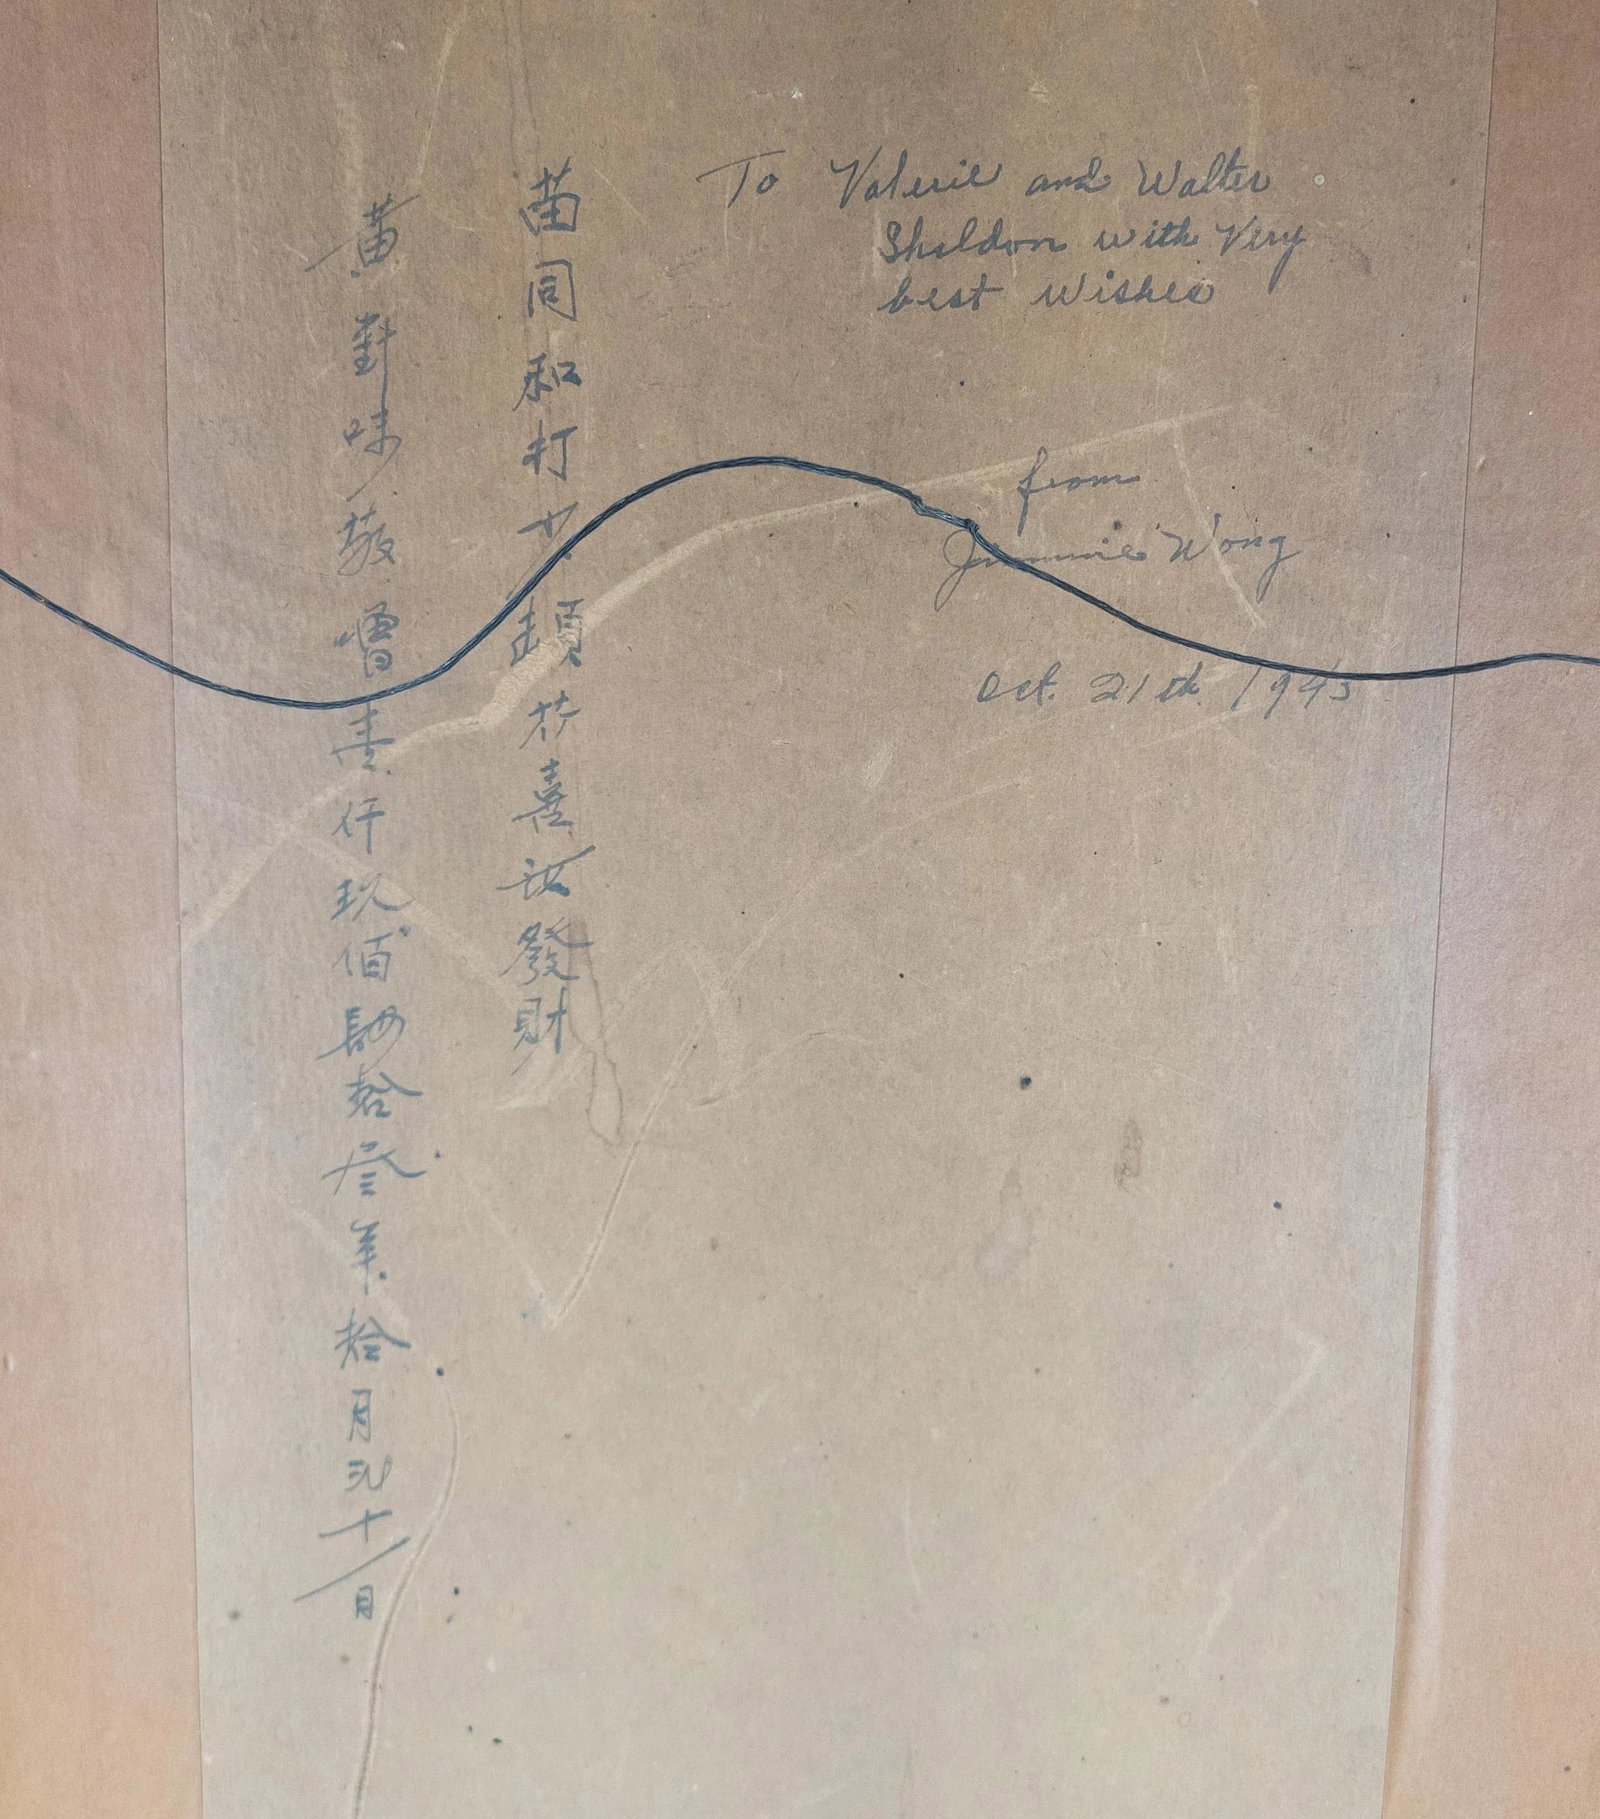 To Valerie and Walter
Sheldon with Very
best Wishes
from
Jimmie Wong
Oct. 21th 1943
苗同和打頓恭喜發財
黃對味敬贈壹仟玖佰肆拾叁年拾月二十一日